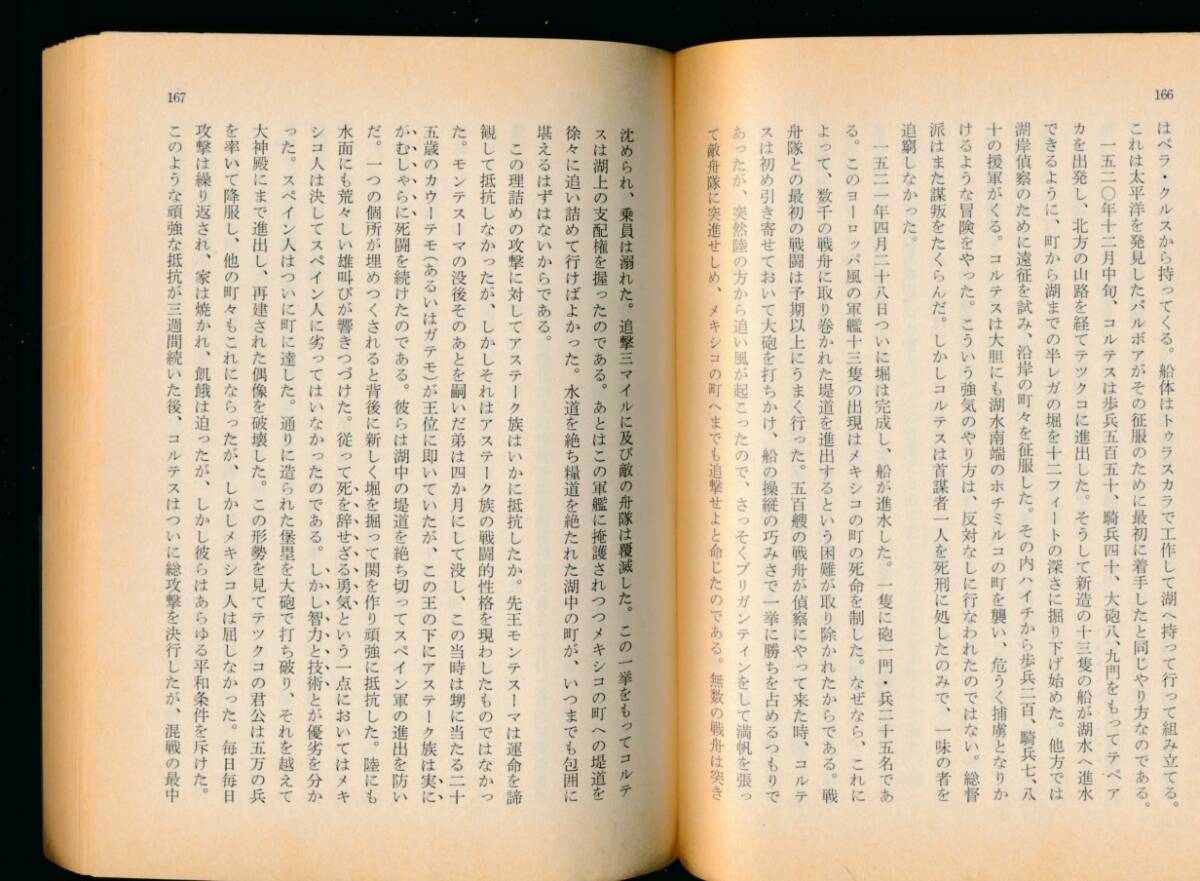 166
はベラ・クルスから持ってくる。船体はトゥラスカラで工作して湖へ持って行って組み立てる。
これは太平洋を発見したバルボアがその征服のために最初に着手したと同じやり方なのである。
一五二〇年十二月中旬、コルテスは歩兵五百五十、騎兵四十、大砲八、九門をもってテペア
カを出発し、北方の山路を経てテツクコに進出した。そうして新造の十三隻の船が湖水へ進水
できるように、町から湖までの半レガの堀を十二フィートの深さに掘り下げ始めた。他方では
湖岸偵察のために遠征を試み、沿岸の町々を征服した。その内ハイチから歩兵二百、騎兵七、八
十の援軍がくる。コルテスは大胆にも湖水南端のホチミルコの町を襲い、危うく捕虜となりか
けるような冒険をやった。こういう強気のやり方は、反対なしに行なわれたのではない。総督
派はまた謀叛をたくらんだ。しかしコルテスは首謀者一人を死刑に処したのみで、一味の者を
追窮しなかった。
一五二一年四月二十八日ついに堀は完成し、船が進水した。一隻に砲一門・兵二十五名であ
る。このヨーロッパ風の軍艦十三隻の出現はメキシコの町の死命を制した。なぜなら、これに
よって、数千の戦舟に取り巻かれた堤道を進出するという困難が取り除かれたからである。戦
舟隊との最初の戦闘は予期以上にうまく行った。五百艘の戦舟が偵察にやって来た時、コルテ
スは初め引き寄せておいて大砲を打ちかけ、船の操縦の巧みさで一挙に勝ちを占めるつもりで
あったが、突然陸の方から追い風が起こったので、さっそくブリガンティンをして満帆を張っ
て敵舟隊に突進せしめ、メキシコの町へまでも追撃せよと命じたのである。無数の戦舟は突き
167
沈められ、乗員は溺れた。追撃三マイルに及び敵の舟隊は覆滅した。この一挙をもってコルテ
スは湖上の支配権を握ったのである。あとはこの軍艦に掩護されつつメキシコの町への堤道を
徐々に追い詰めて行けばよかった。水道を絶ち糧道を絶たれた湖中の町が、いつまでも包囲に
堪えるはずはないからである。
この理詰めの攻撃に対してアステーク族はいかに抵抗したか。先王モンテスーマは運命を諦
観して抵抗しなかったが、しかしそれはアステーク族の戦闘的性格を現わしたものではなかっ
た。モンテスーマの没後そのあとを嗣いだ弟は四か月にして没し、この当時は甥に当たる二十
五歳のカウーテモ(あるいはガテモ)が王位に即いていたが、この王の下にアステーク族は実に、
がむしゃらに死闘を続けたのである。彼らは湖中の堤道を絶ち切ってスペイン軍の進出を防い
だ。一つの個所が埋めつくされると背後に新しく堀を掘って関を作り頑強に抵抗した。陸にも
水面にも荒々しい雄叫びが響きつづけた。従って死を辞せざる勇気という一点においてはメキ
シコ人は決してスペイン人に劣ってはいなかったのである。しかし智力と技術とが優劣を分か
った。スペイン人はついに町に達した。通りに造られた堡塁を大砲で打ち破り、それを越えて
大神殿にまで進出し、再建された偶像を破壊した。この形勢を見てテツクコの君公は五万の兵
を率いて降服し、他の町々もこれにならったが、しかしメキシコ人は屈しなかった。毎日毎日
攻撃は繰り返され、家は焼かれ、飢餓は迫ったが、しかし彼らはあらゆる平和条件を斥けた。
このような頑強な抵抗が三週間続いた後、コルテスはついに総攻撃を決行したが、混戦の最中